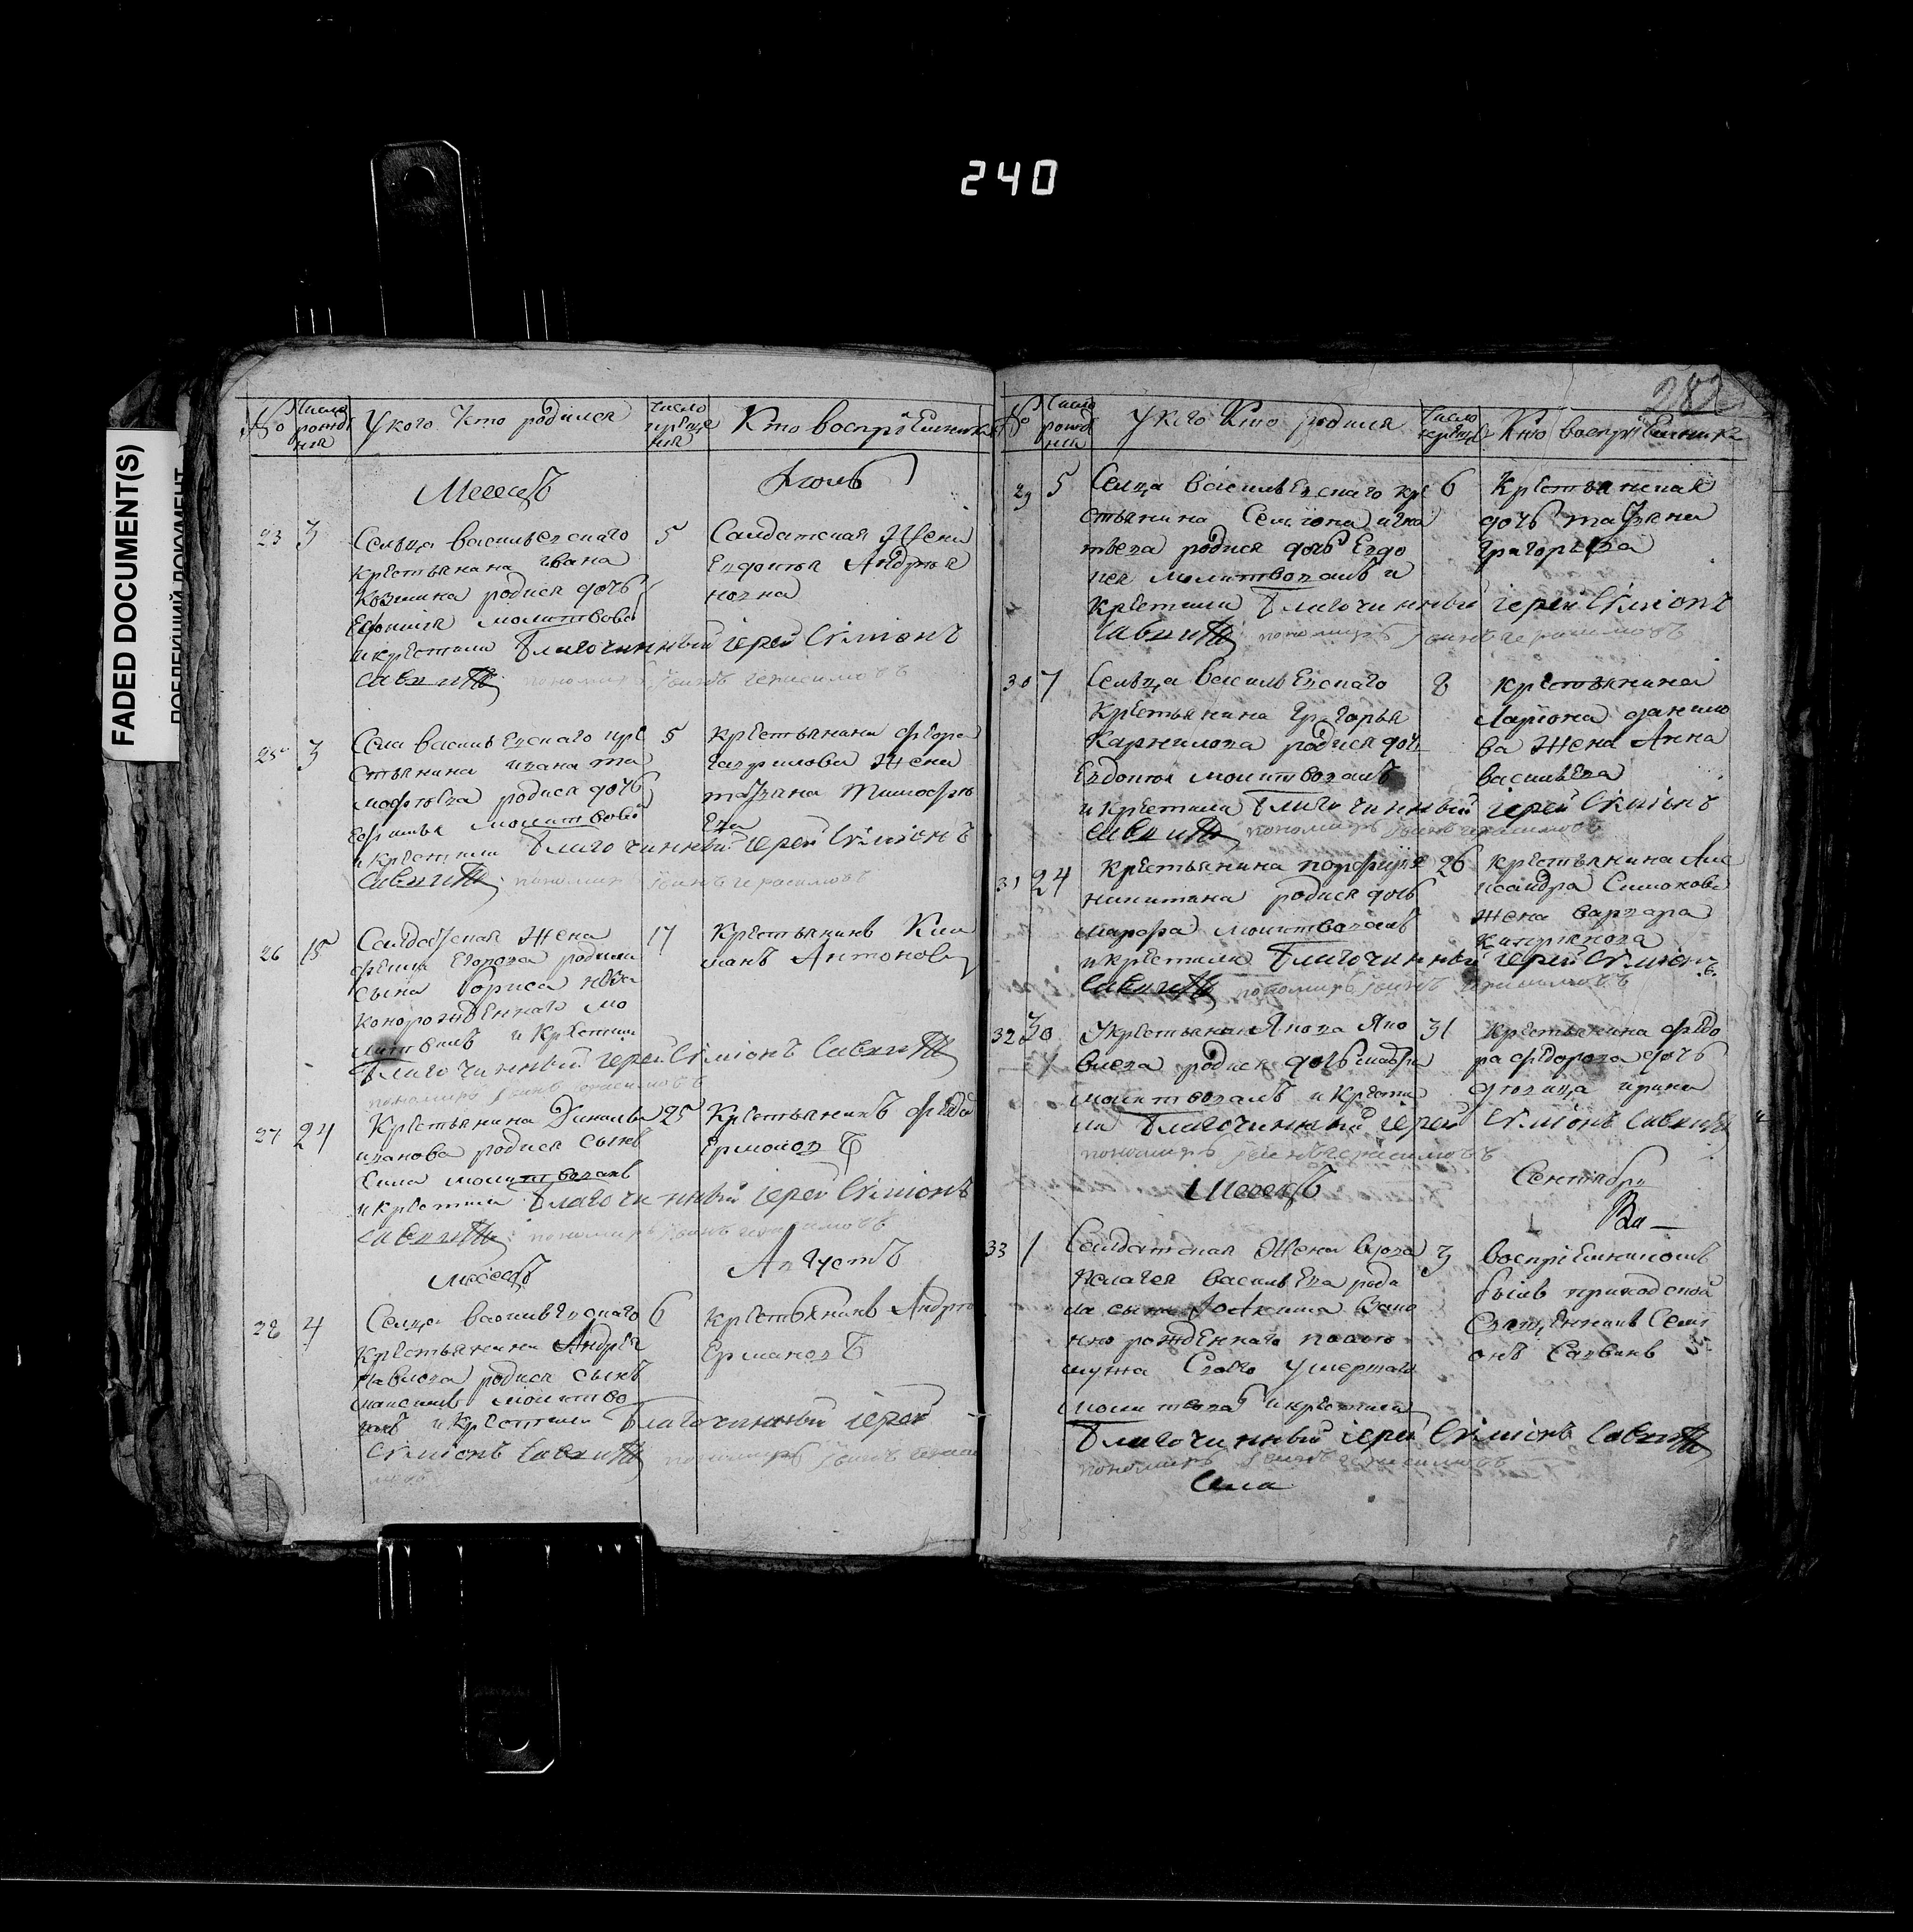 240
FADED DOCUMENT(S)
282
No Число рожде ния
У кого Кто родился
Число креще ния
Кто воспріемники
Месецъ
Июль
23 3
Сельца васильевскаго
крестьянина ивана
Козмина родися дочь
Евфимия молитвова
и крестили Благочинный іерей Сѵмионъ
Савви
пономарь Іванъ герасимовъ
5
Салдатская Жена
Евдокия Андрея
новна
25 3
Села васильевскаго кре
стьянина ивана ти
мофеева родися дочь
молитвова
и крестили Благочинный іерей Сѵмионъ
Савви
пономарь Іванъ герасимовъ
5
крестьянина федора
гаврилова Жена
татьяна Тимофее
ва
26 15
Салдатская Жена
Егорова родила
сына Бориса неза
конорожденнаго мо
литвовалъ и Крестили
Благочинный іерей Сѵмионъ Савви
пономарь Іванъ герасимовъ
17
Крестьянинъ
Антоновъ
27 24
Крестьянина Данилы
иванова родися сынъ
Сила молитвовалъ
и крестили Благочинный іерей Сѵмионъ
Савви
пономарь Іванъ герасимовъ
25
Крестьянинъ федоръ
Ермолов
Месецъ
Августъ
28 4
Сельца васильевскаго
крестьянина Андрея
Павлова родися сынъ
максимъ молитво
валъ и Крестили Благочинный іерей
Сѵмионъ Савви
пономарь Іванъ гераси
мовъ
6
крестьянинъ Андрей
Ермаков
No Число рожде ния
У кого Кто родился
Число креще
Кто воспріемники
29 5
Сельца васильевскаго кре
стьянина Семиона игна
тьева родися дочь Евдо
кея молитвовалъ и
крестили Благочинный іерей Сѵмионъ
Савви
пономарь Іванъ герасимовъ
6
Крестьянская
дочь татьяна
Григорьева
30 7
Сельца васильевскаго
Крестьянина Григорья
Карнилова родися дочь
Евдокия молитвовалъ
и крестили Благочинный іерей Сѵмионъ
Савви
пономарь Іванъ герасимовъ
8
крестьянина
Лариона данило
ва Жена Анна
васильева
31 24
Крестьянина порфирия
никитина родися дочь
марфа молитвовалъ
и крестили Благочинный іерей Сѵмионъ
Савви
пономарь Іванъ герасимовъ
26
крестьянина Але
ксандра Симонова
Жена варвара
Киприянова
32 30
У крестьянина Якова Яко
влева родися дочь мавра
молитвовалъ и Крести
ли Благочинный іерей Сѵмионъ Савви
пономарь Іванъ герасимовъ
31
крестьянина федо
ра федорова дочь
девица ирина
Месецъ
Сентябрь
33 1
Салдатская Жена вдова
Пелагея васильева роди
ла сына Іоакима Зако
нно рожденнаго после
мужа Своего умершаго
молитвовалъ и крестили
Благочинный іерей Сѵмионъ Савви
пономарь Іванъ герасимовъ
3
воспріемникомъ
былъ приходской
Священникъ Семи
онъ Саввинъ
Села